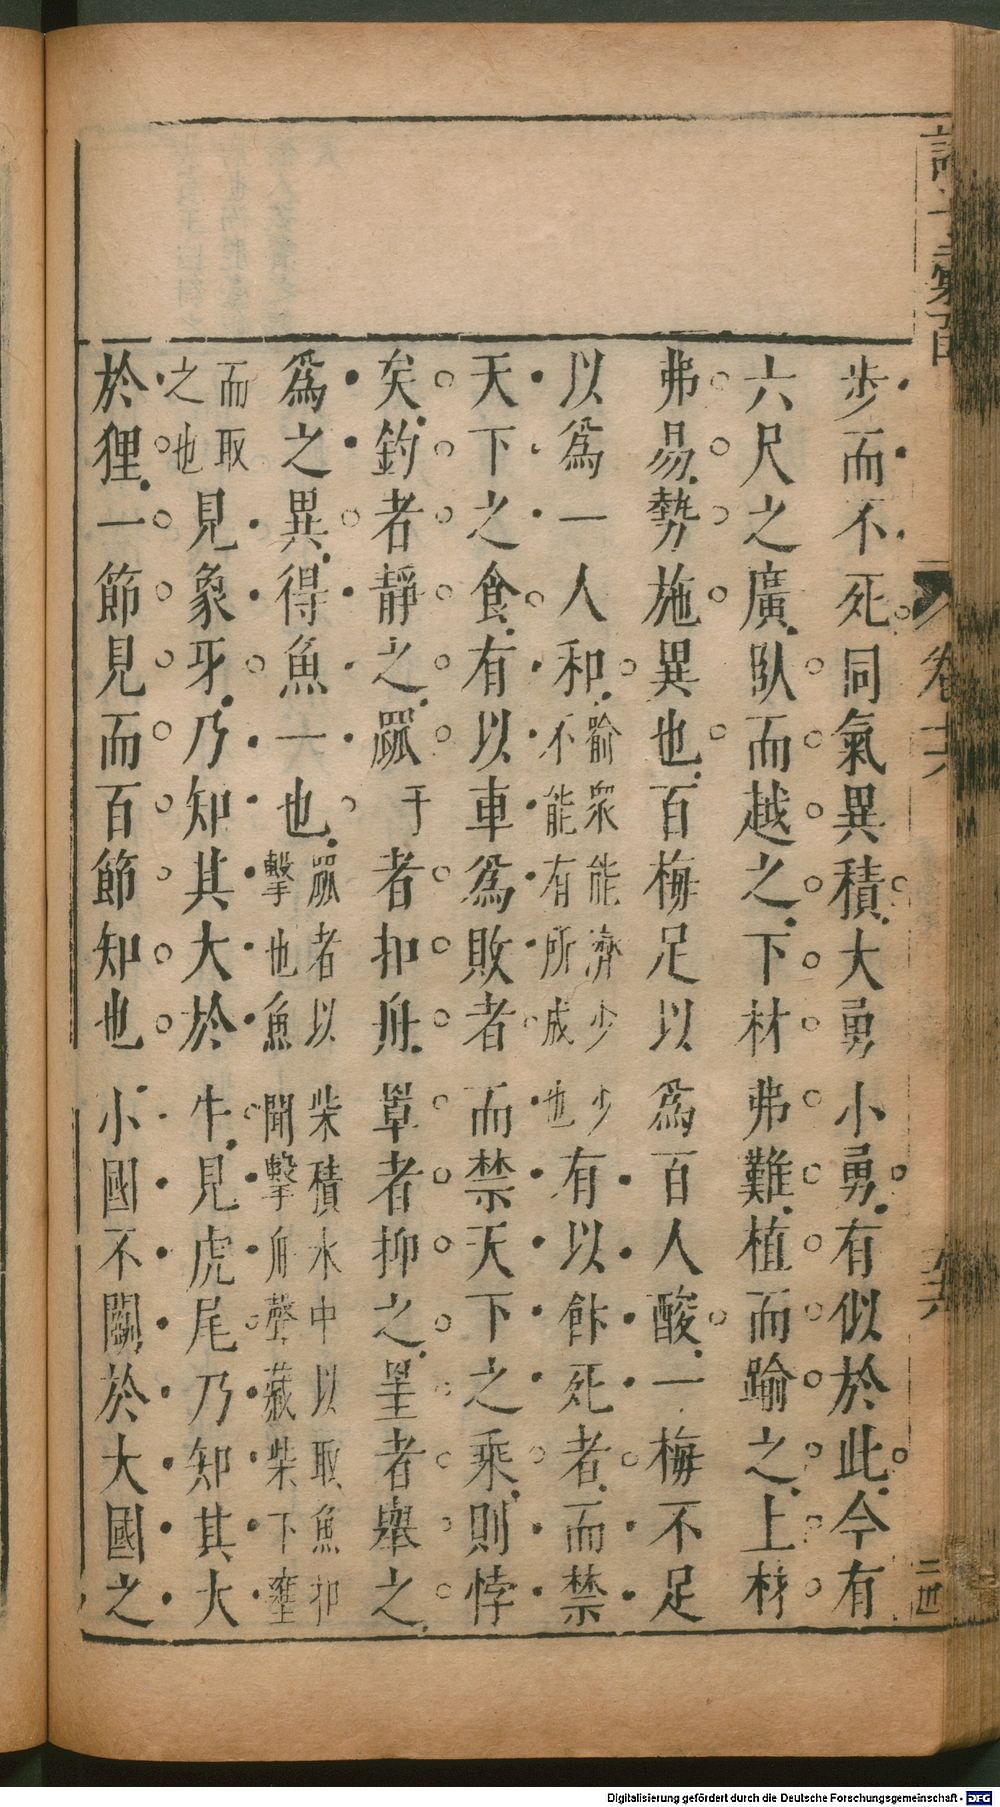 步而不死同氣異積大勇小勇有似於此今有
六尺之廣臥而越之下材弗難植而踰之上材
弗易勢施異也百梅足以爲百人酸一梅不足
以爲一人和喻衆能濟少少不能有所成也有以飰死者而禁
天下之食有以車爲敗者而禁天下之乘則悖
矣釣者靜之罛者扣舟罩者抑之罣者舉之
爲之異得魚一也罛者以柴積水中以取魚扣擊也魚聞擊舟聲藏柴下壅
而取之也見象牙乃知其大於牛見虎尾乃知其大
於狸一節見而百節知也小國不鬭於大國之
卷十六
Digitalisierung gefördert durch die Deutsche Forschungsgemeinschaft - DFG